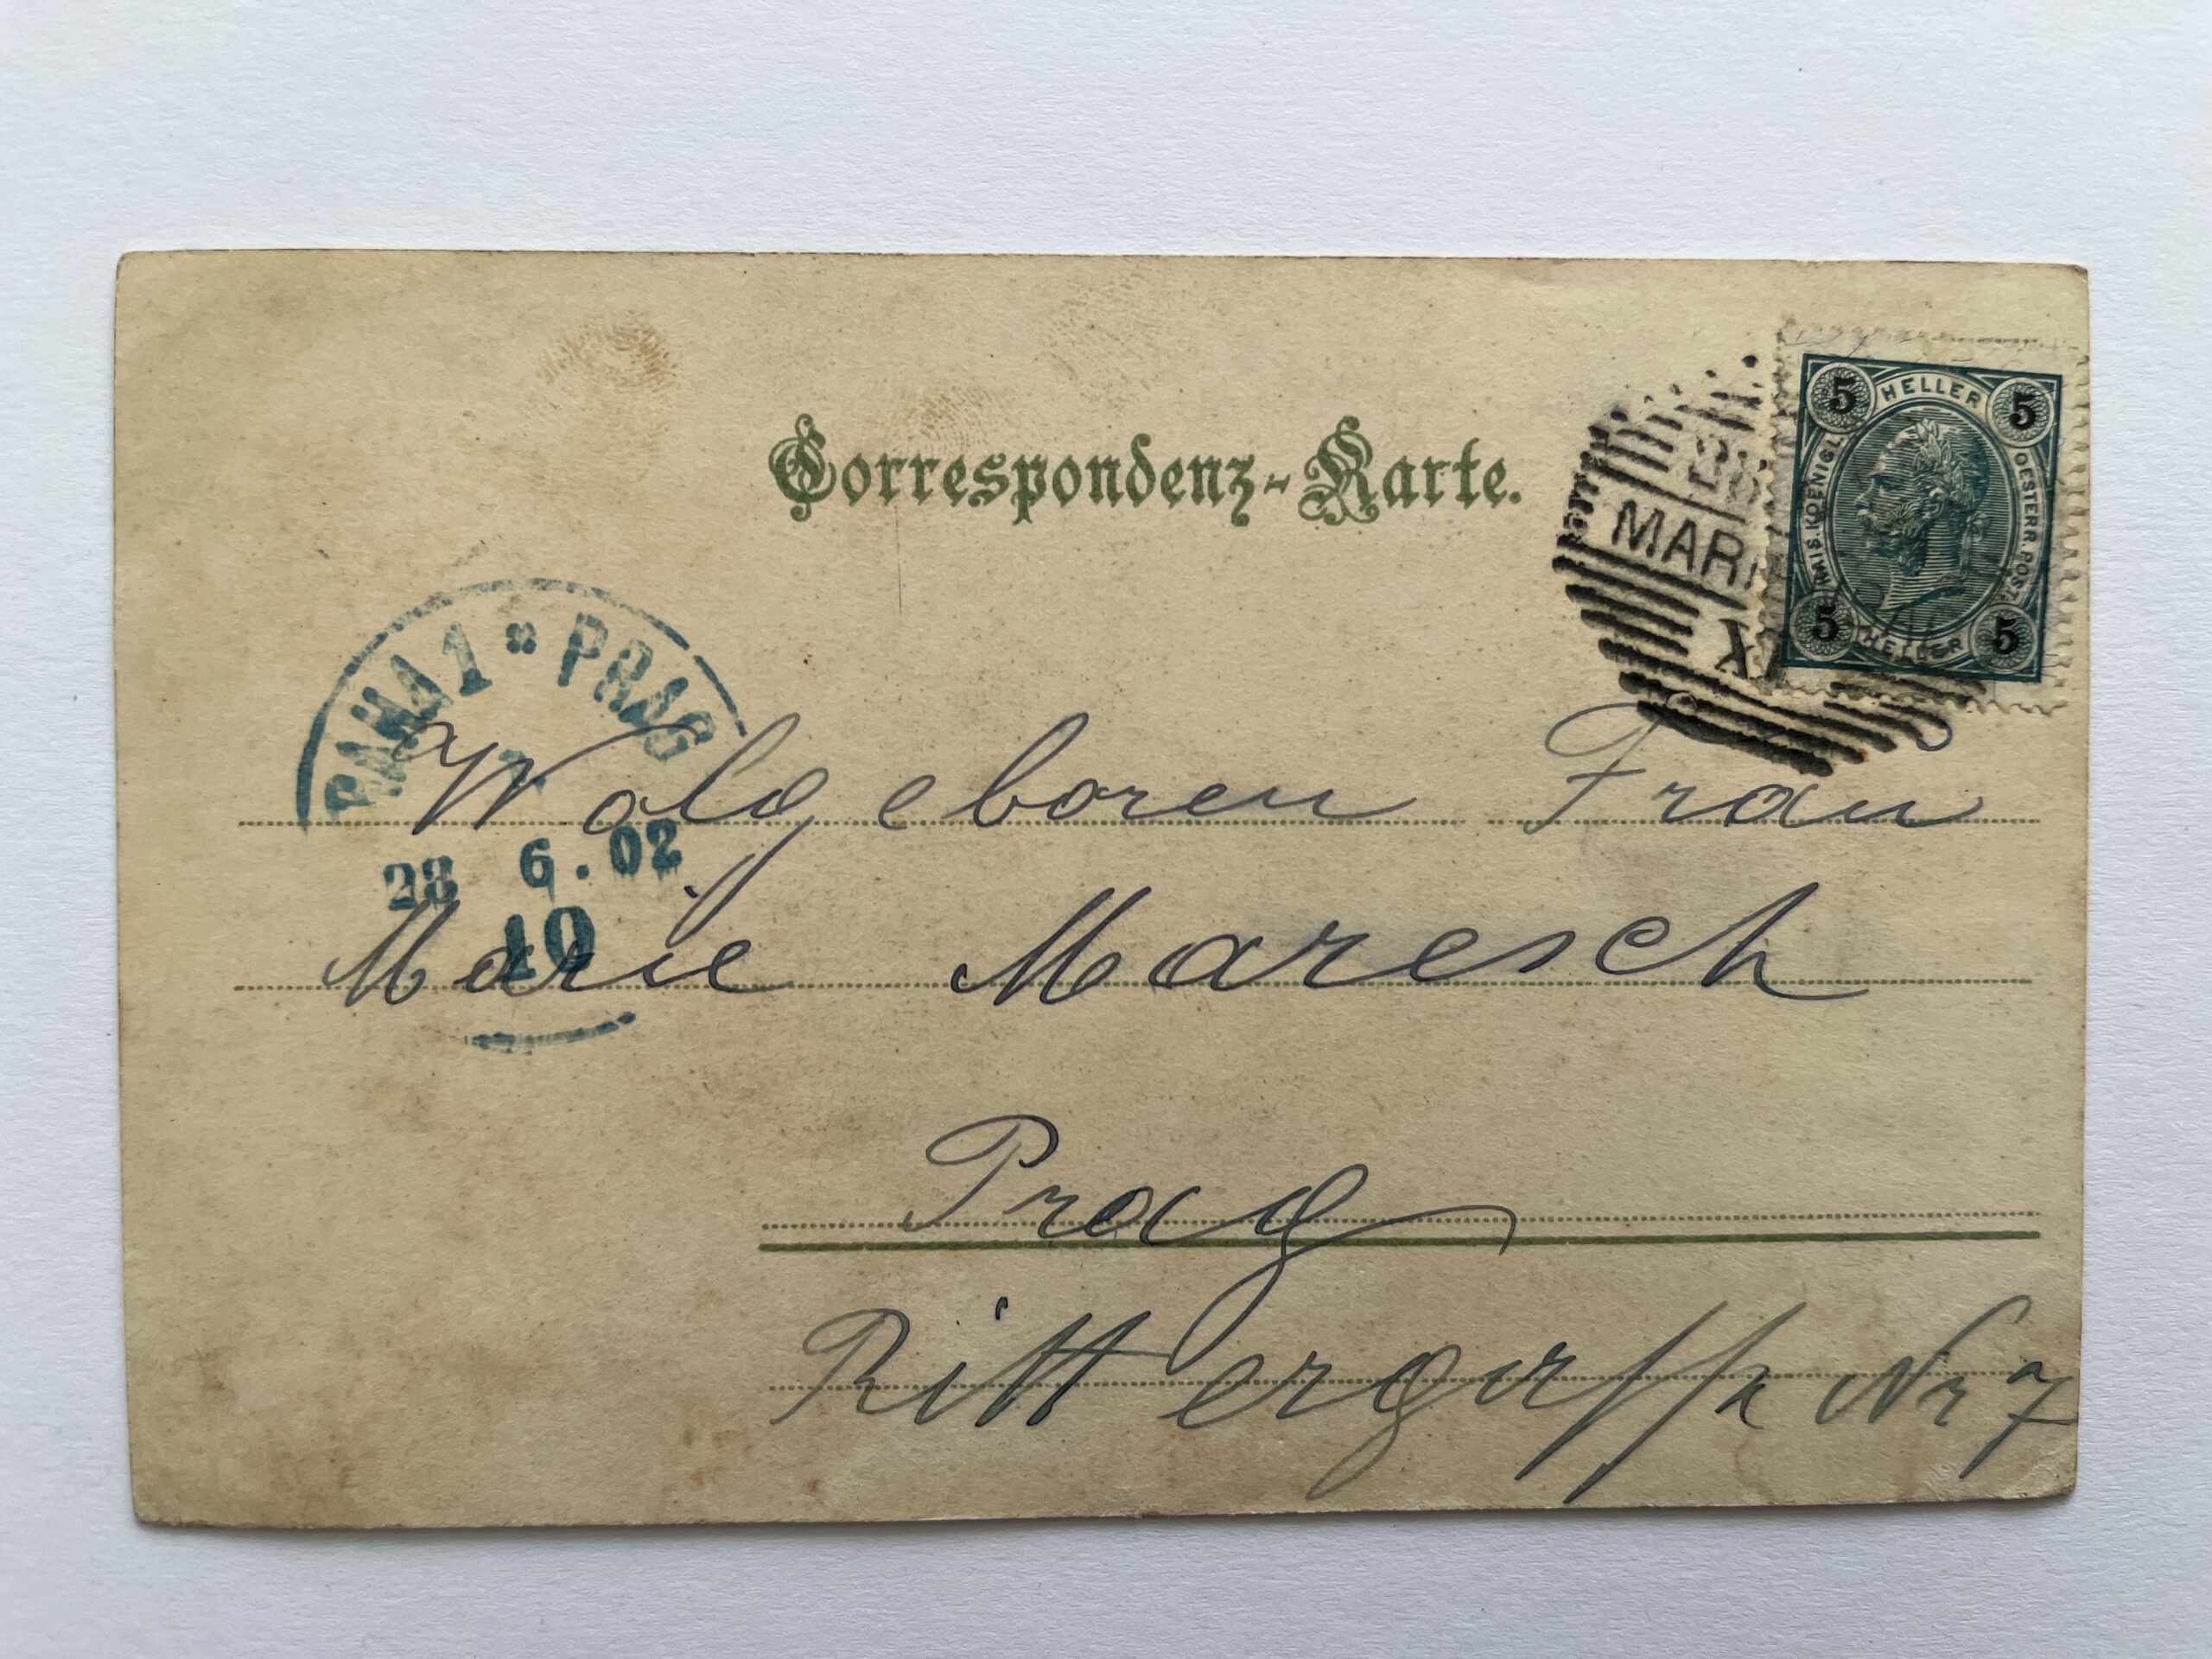 Correspondenz-Karte.
5 HELLER 5
KAIS. KOENIGL. OESTERR. POST
5 HELLER 5
MARI
X
PRAHA 1 * PRAG
28 6.02
10
Wolgeboren Frau
Marie Maresch
Prag
Rittergasse Nr 7